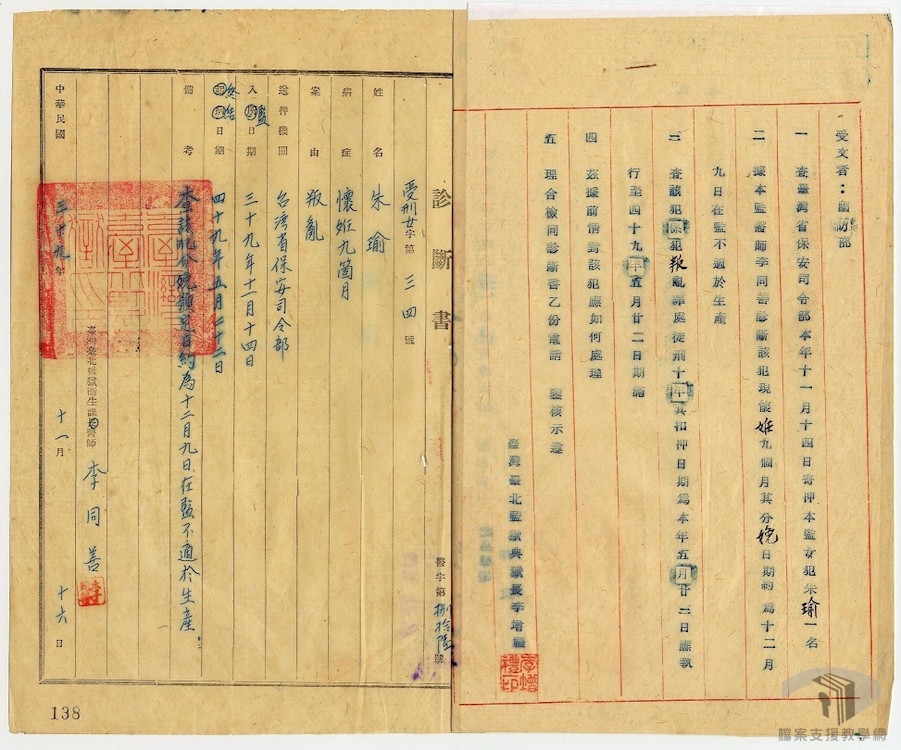 受文者：國防部
一 查臺灣省保安司令部本年十一月十四日寄押本監女犯朱瑜一名
二 據本監醫師李同善診斷該犯現懷姙九個月其分娩日期約為十二月
九日在監不適於生產
三 查該犯係犯叛亂罪處徒刑十年其扣押日期為本年五月廿三日應執
行至四十九年五月廿二日期滿
四 茲據前情對該犯應如何處理
五 理合檢同診斷書乙份電請 鑒核示遵
臺灣臺北監獄典獄長李增禮
李增禮印
診斷書
醫字第捌拾陸號
受刑女字第三四號
姓名 朱瑜
病症 懷姙九箇月
案由 叛亂
送押機關 台灣省保安司令部
入監日期 三十九年十一月十四日
終結日期 四十九年五月二十二日
備考 查該犯分娩預定日約為十二月九日在監不適於生產
臺灣臺北監獄衛生課醫師 李同善
中華民國三十九年十一月十六日
138
檔案支援教學網